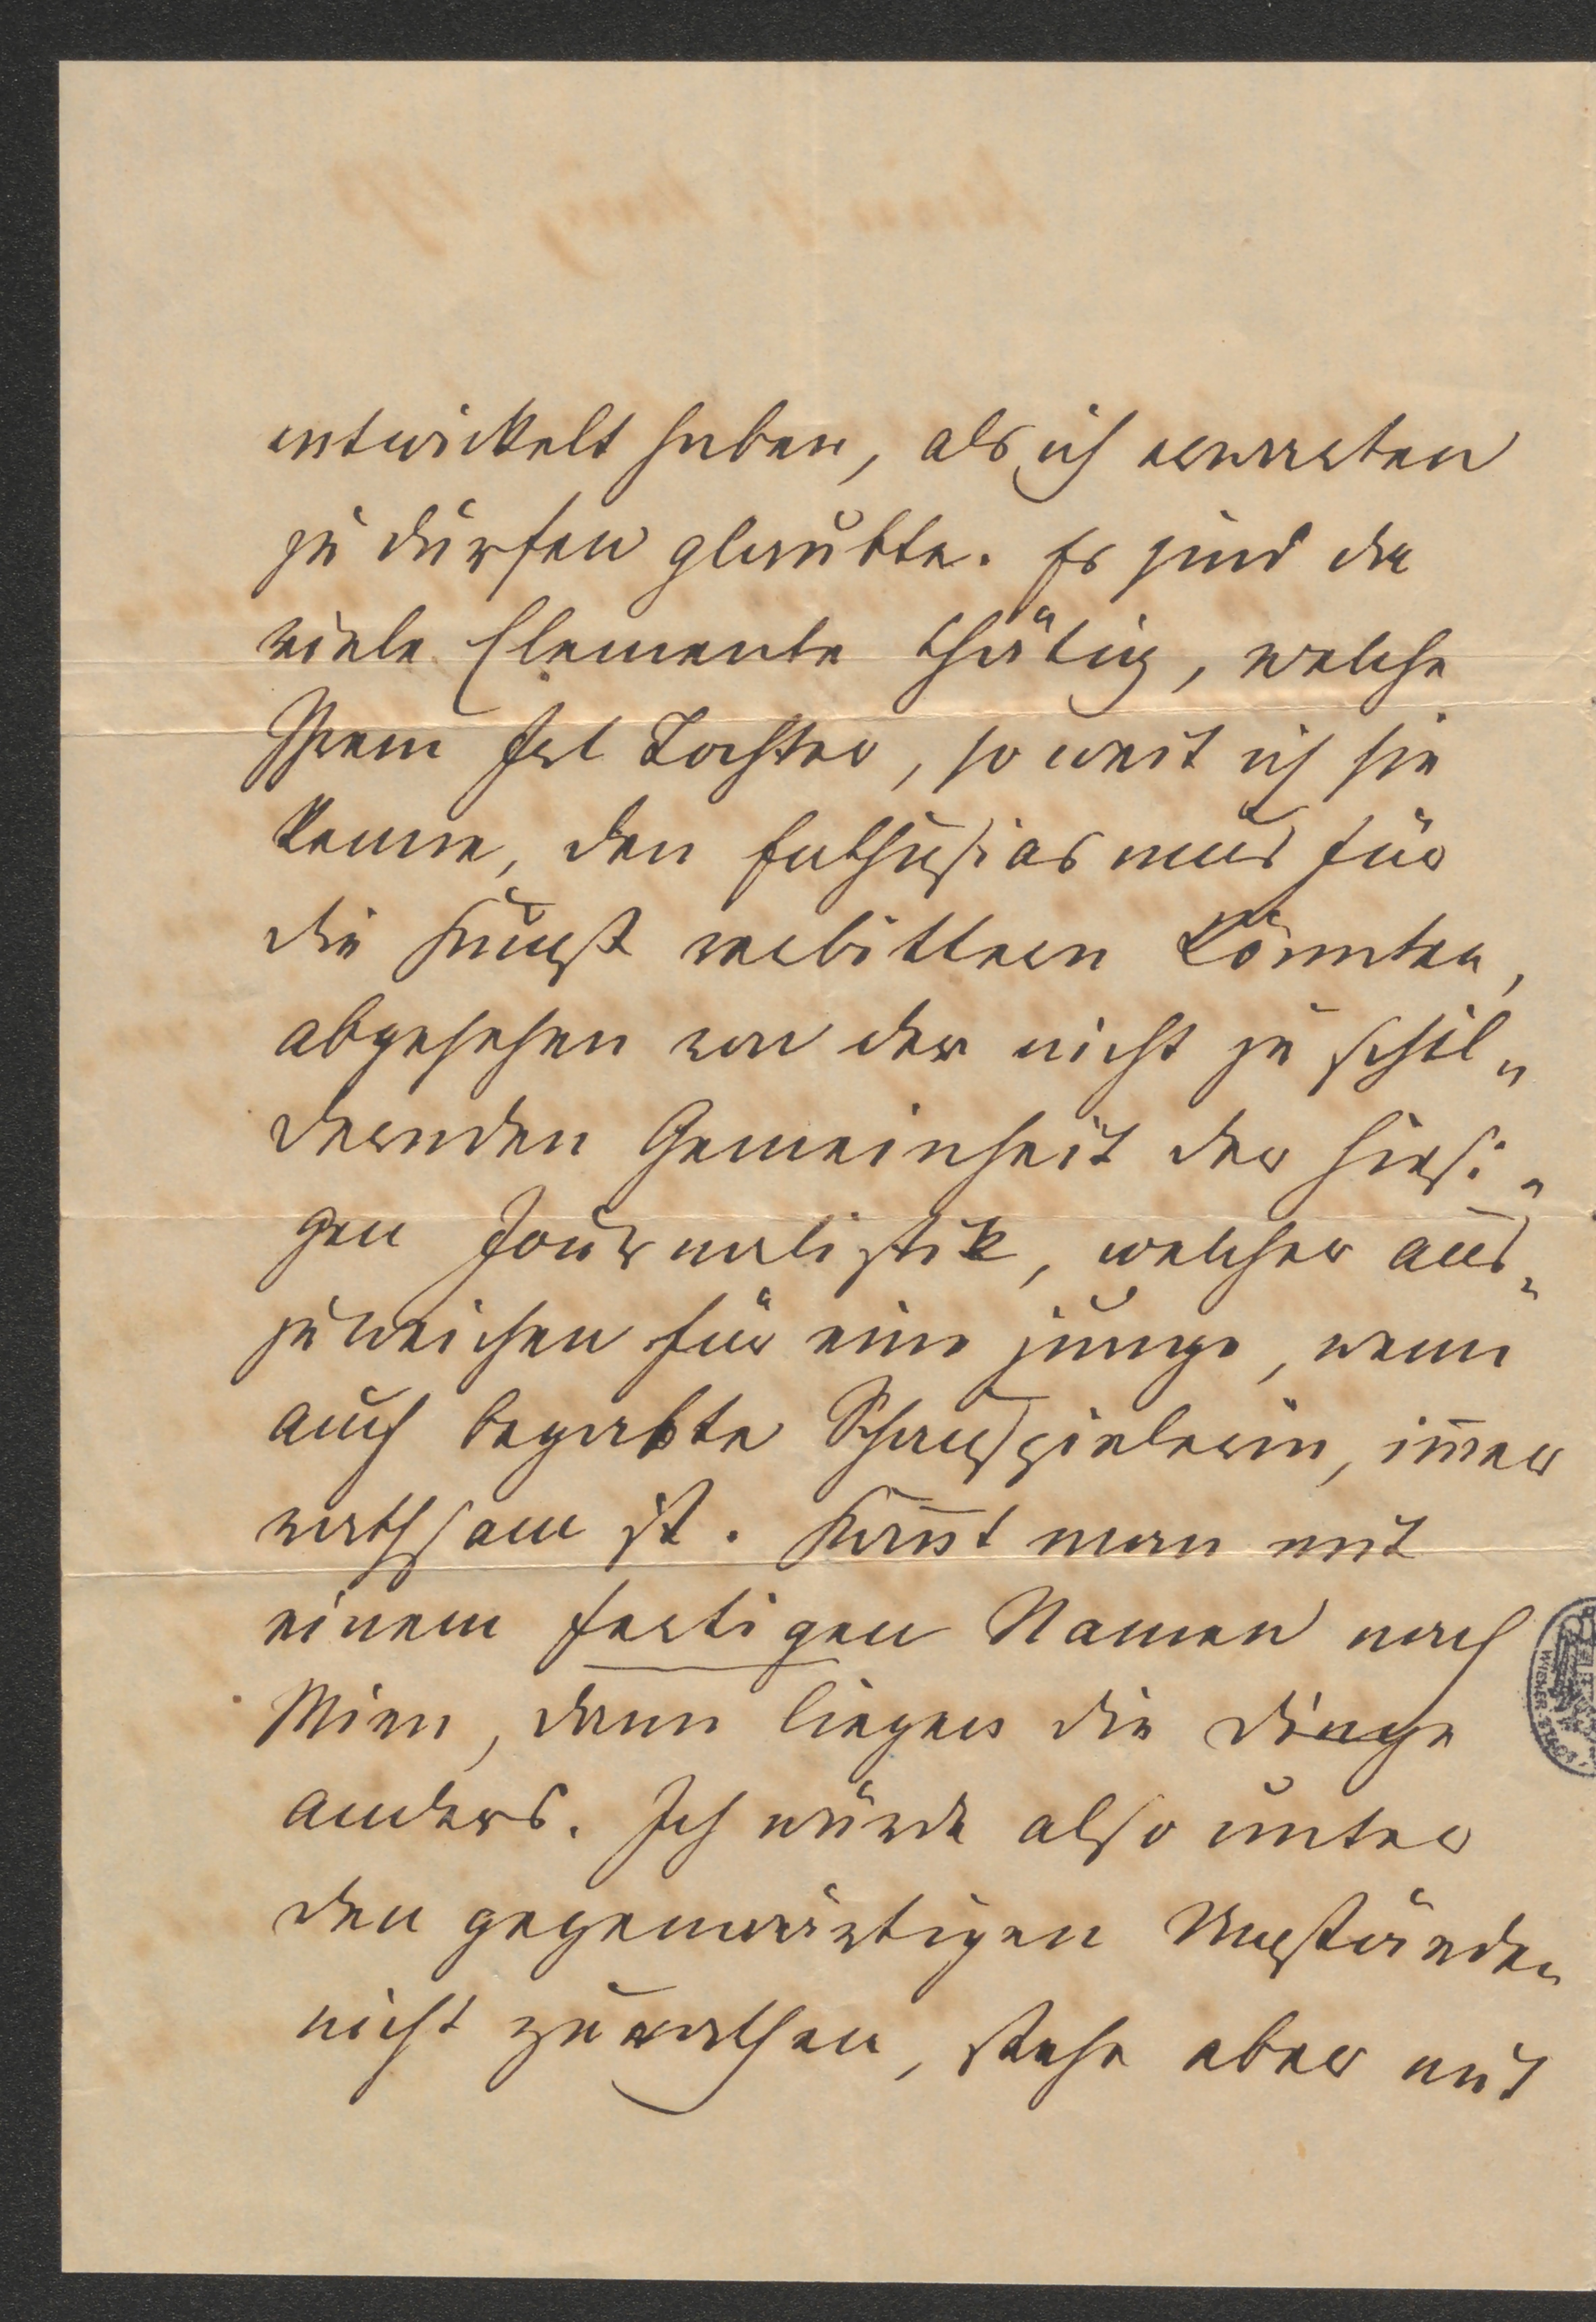 entwickelt haben, als ich erwarten
zu dürfen glaubte. Es sind da
viele Elemente thätig, welche
Ihrem Frl Tochter, so weit ich sie
kenne, den Enthusiasmus für
die Kunst verbittern könnten,
abgesehen von der nicht zu schil„
dernden Gemeinheit der hiesi„
gen Journalistik, welcher aus„
zuweichen für eine junge, wenn
auch begabte Schauspielerin, im̅er
rathsam ist. Kom̅t man mit
einem fertigen Namen nach
Wien, dann liegen die Dinge
anders. Ich würde also unter
den gegenwärtigen Umständen
nicht zurathen, stehe aber mit
WIENER